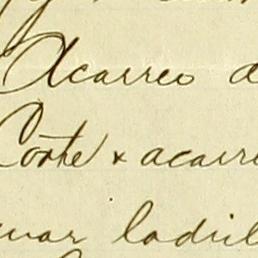 Acarreo d
Corte x acarre
nar ladril